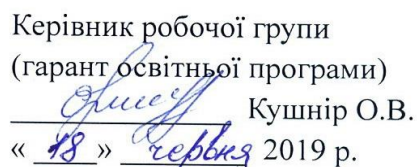 Керівник робочої групи
(гарант освітньої програми)
Кушнір О.В.
« 18 » червня 2019 р.